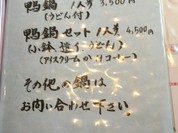 鴨鍋 1人分 3,500円
(うどん付)
鴨鍋セット 1人分 4,500円
(小鉢 造り うどん)
(アイスクリーム コーヒー)
その他の鍋は
お問い合わせ下さい